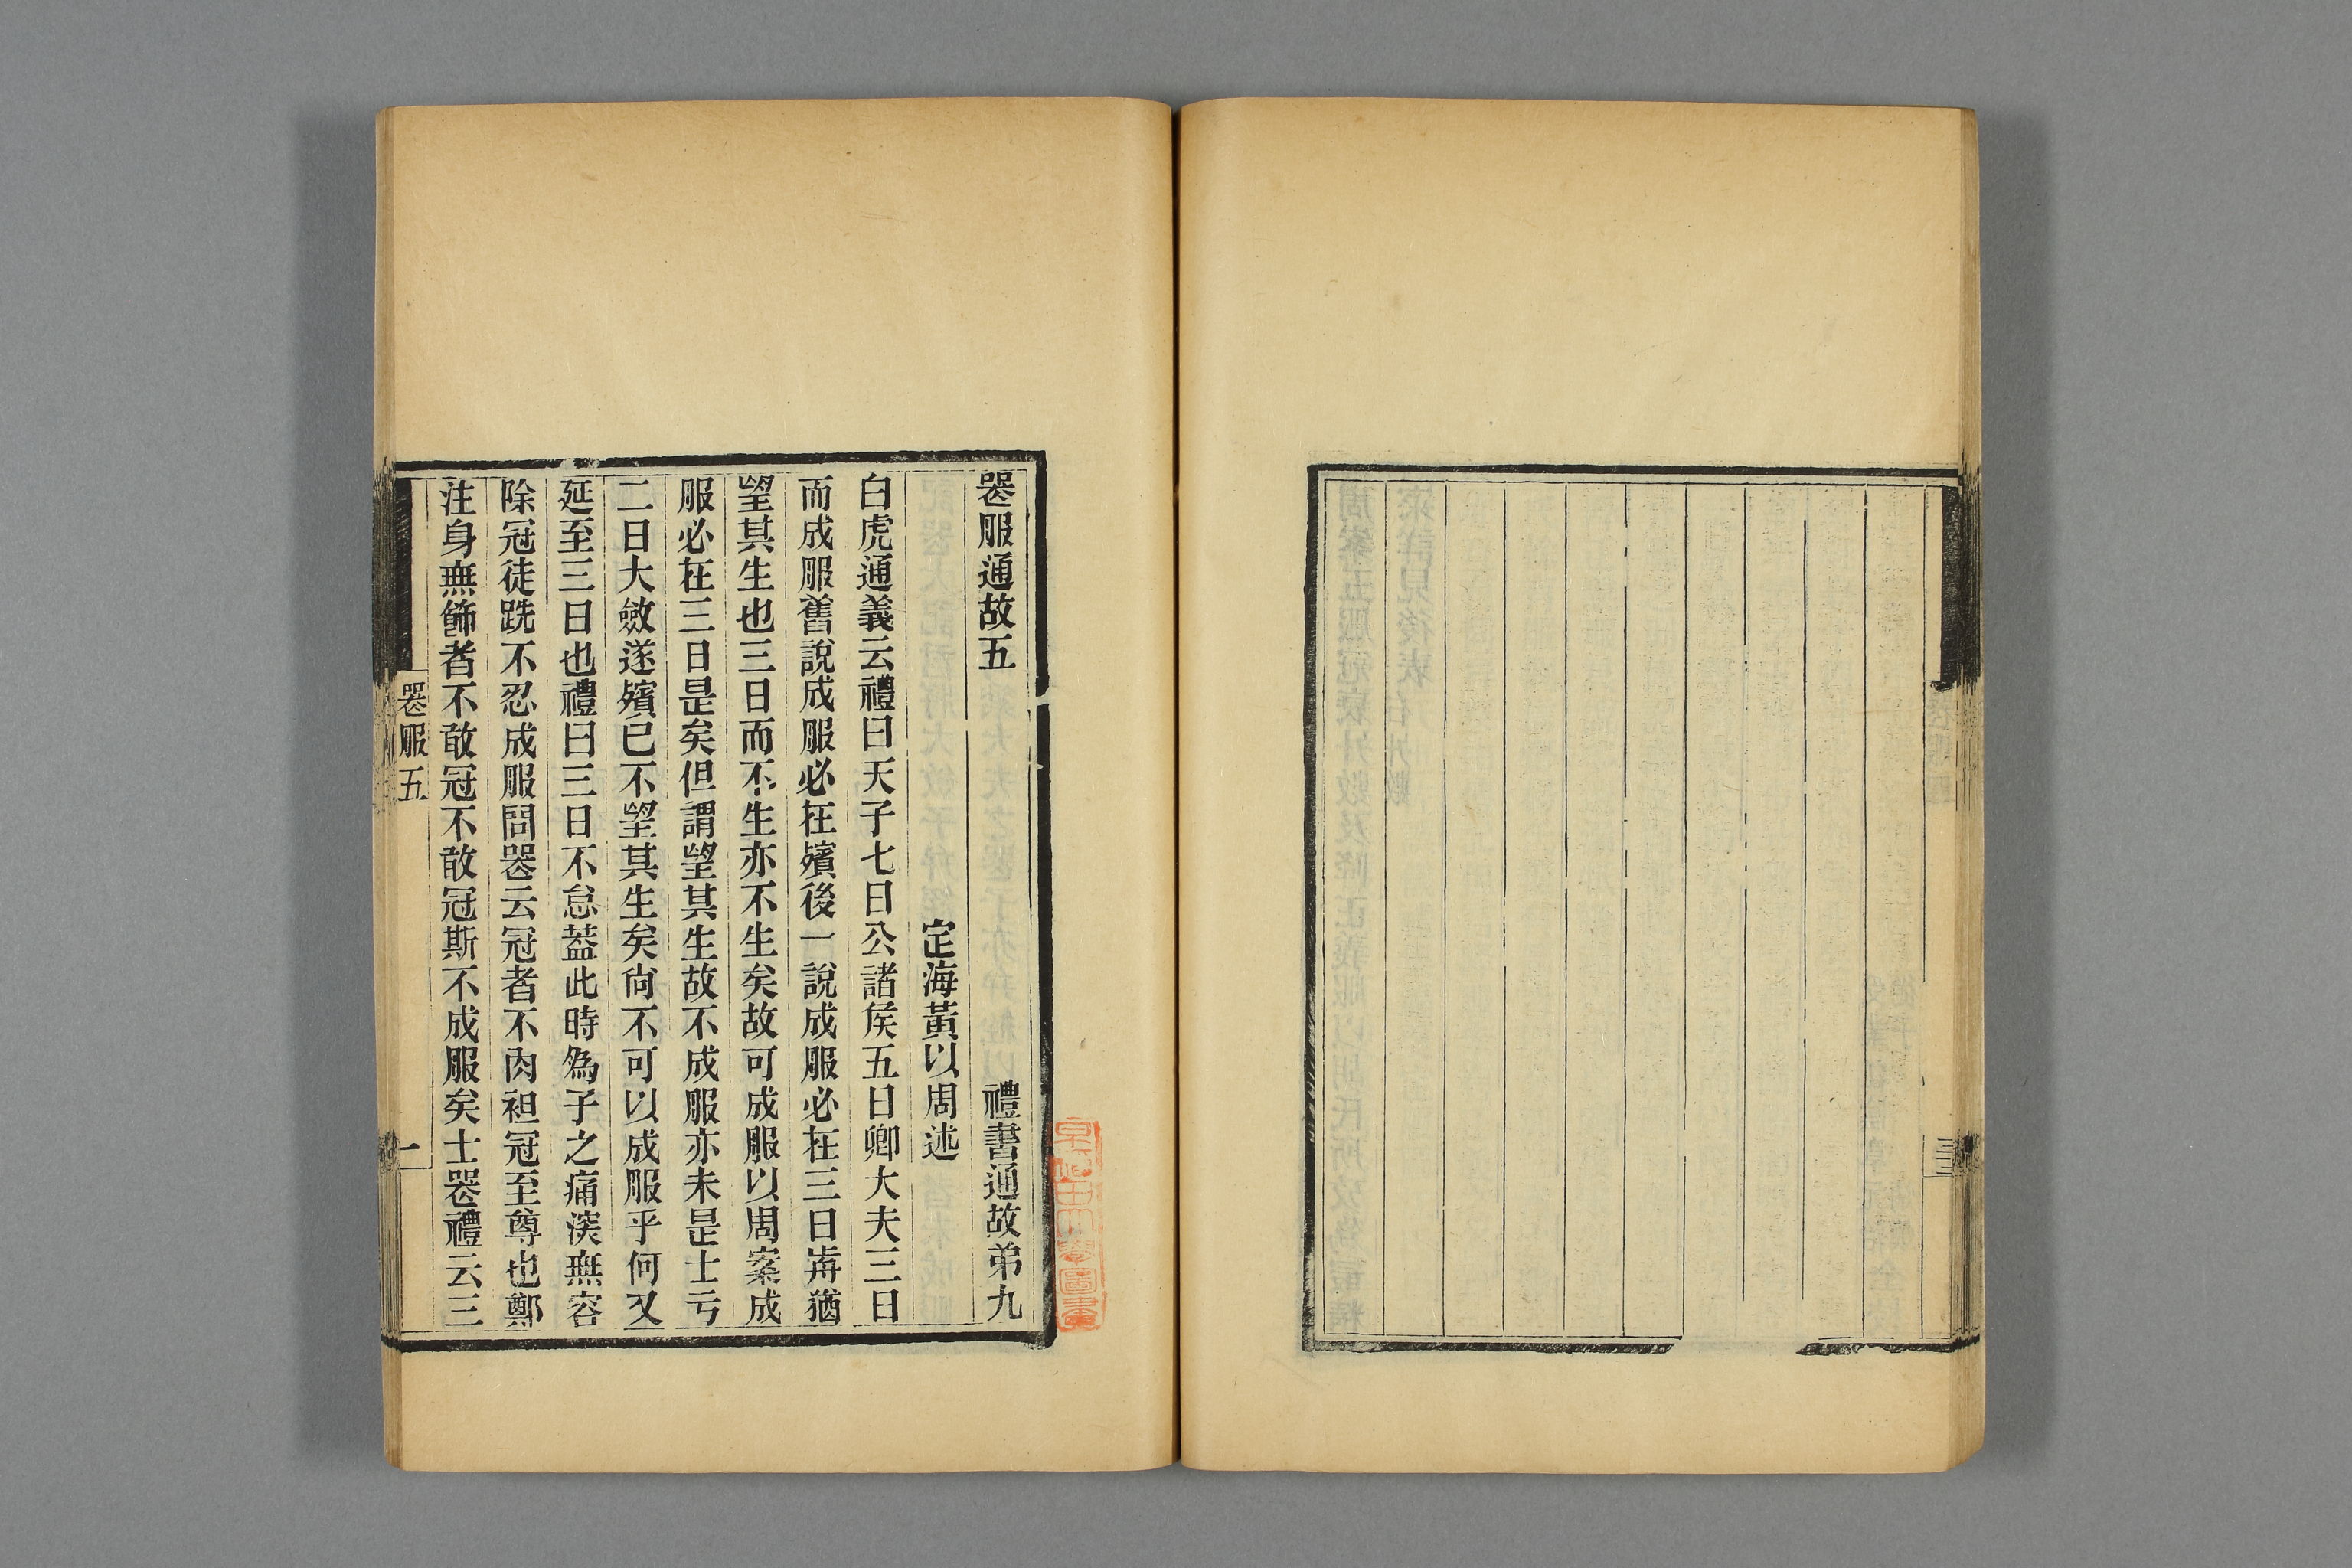 喪服通故五　禮書通故弟九
定海黃以周述
白虎通義云禮曰天子七日公諸侯五日卿大夫三日
而成服舊說成服必在殯後一說成服必在三日歬猶
望其生也三日而不生亦不生矣故可成服以周案成
服必在三日是矣但謂望其生故不成服亦未是士亏
二日大斂遂殯已不望其生矣尙不可以成服乎何又
延至三日也禮曰三日不怠蓋此時爲子之痛深無容
除冠徒跣不忍成服問喪云冠者不肉袒冠至尊也鄭
注身無飾者不敢冠不敢冠斯不成服矣士喪禮云三
喪服五
一